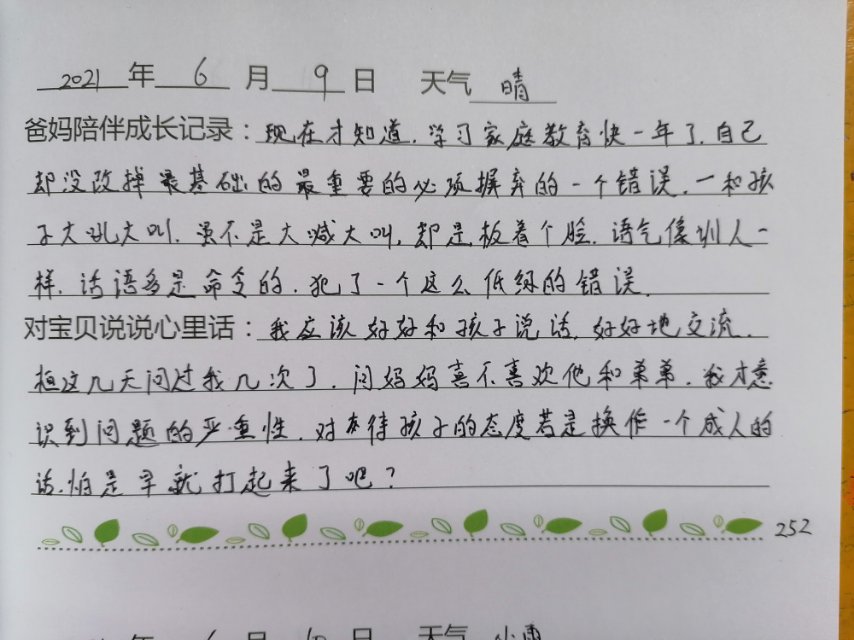 2021 年 6 月 9 日 天气 晴
爸妈陪伴成长记录：现在才知道，学习家庭教育快一年了，自己
却没改掉最基础的最重要的必须摒弃的一个错误，一和孩
子大吼大叫，虽不是大喊大叫，却是板着个脸，语气像训人一
样，话语多是命令的，犯了一个这么低级的错误。
对宝贝说说心里话：我应该好好和孩子说话，好好地交流，
桓这几天问过我几次了，问妈妈喜不喜欢他和弟弟，我才意
识到问题的严重性，对待孩子的态度若是换作一个成人的
话，怕是早就打起来了吧？
252
年 6 月 10 日 天气 小雨